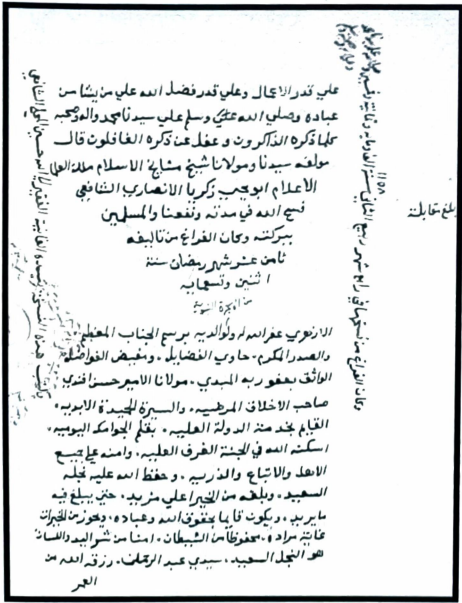 علي قدر الاعمال وعلي قدر فضل الله علي من يشا من
عباده وصلي الله علي وسلم علي سيدنا محمد واله وصحبه
كلما ذكره الذاكرون وغفل عن ذكره الغافلون قال
مولفه سيدنا ومولانا شيخ مشايخ الاسلام ملك العلما
الاعلام ابو يحيي زكريا الانصاري الشافعي
فسح الله في مدته ونفعنا والمسلمين
ببركته وكان الفراغ من تاليفه
ثامن عشر شهر رمضان سنة
اثنين وتسعمايه
من الهجرة النبويه
غفر الله له ولوالديه برسم الجناب المعظم
والصدر المكرم، حاوي الفضايل، ومفيض الفواضل
الواثق بعفو ربه المبدي، مولانا الامير حسن افندي
صاحب الاخلاق المرضيه، والسيرة الحميدة الابويه،
القايم بخدمة الدولة العليه، بقلم الجوامك اليوميه،
اسكنه الله في الجنة الغرف العليه، وامنه علي جميع
الاهل والاتباع والذريه، وحفظ الله عليه نجله
السعيد، وبلغه من الخير اعلي مزيد، حتي يبلغ فيه
ما يريد، ويكون قايما بحقوق الله وعباده، ويحوز من الخيرات
غاية مراده، محفوظا من الشيطان، امنا من شر اليد واللسان
هو النجل السعيد، سيدي عبد الرحمن، رزقه الله من
العمر
وكان الفراغ من نسخها في رابع شهر ربيع الثاني سنة
١١٥٨
بلغ مقابلة
وكتب هذه النسخة بيده الفانية الفقير الشافعي